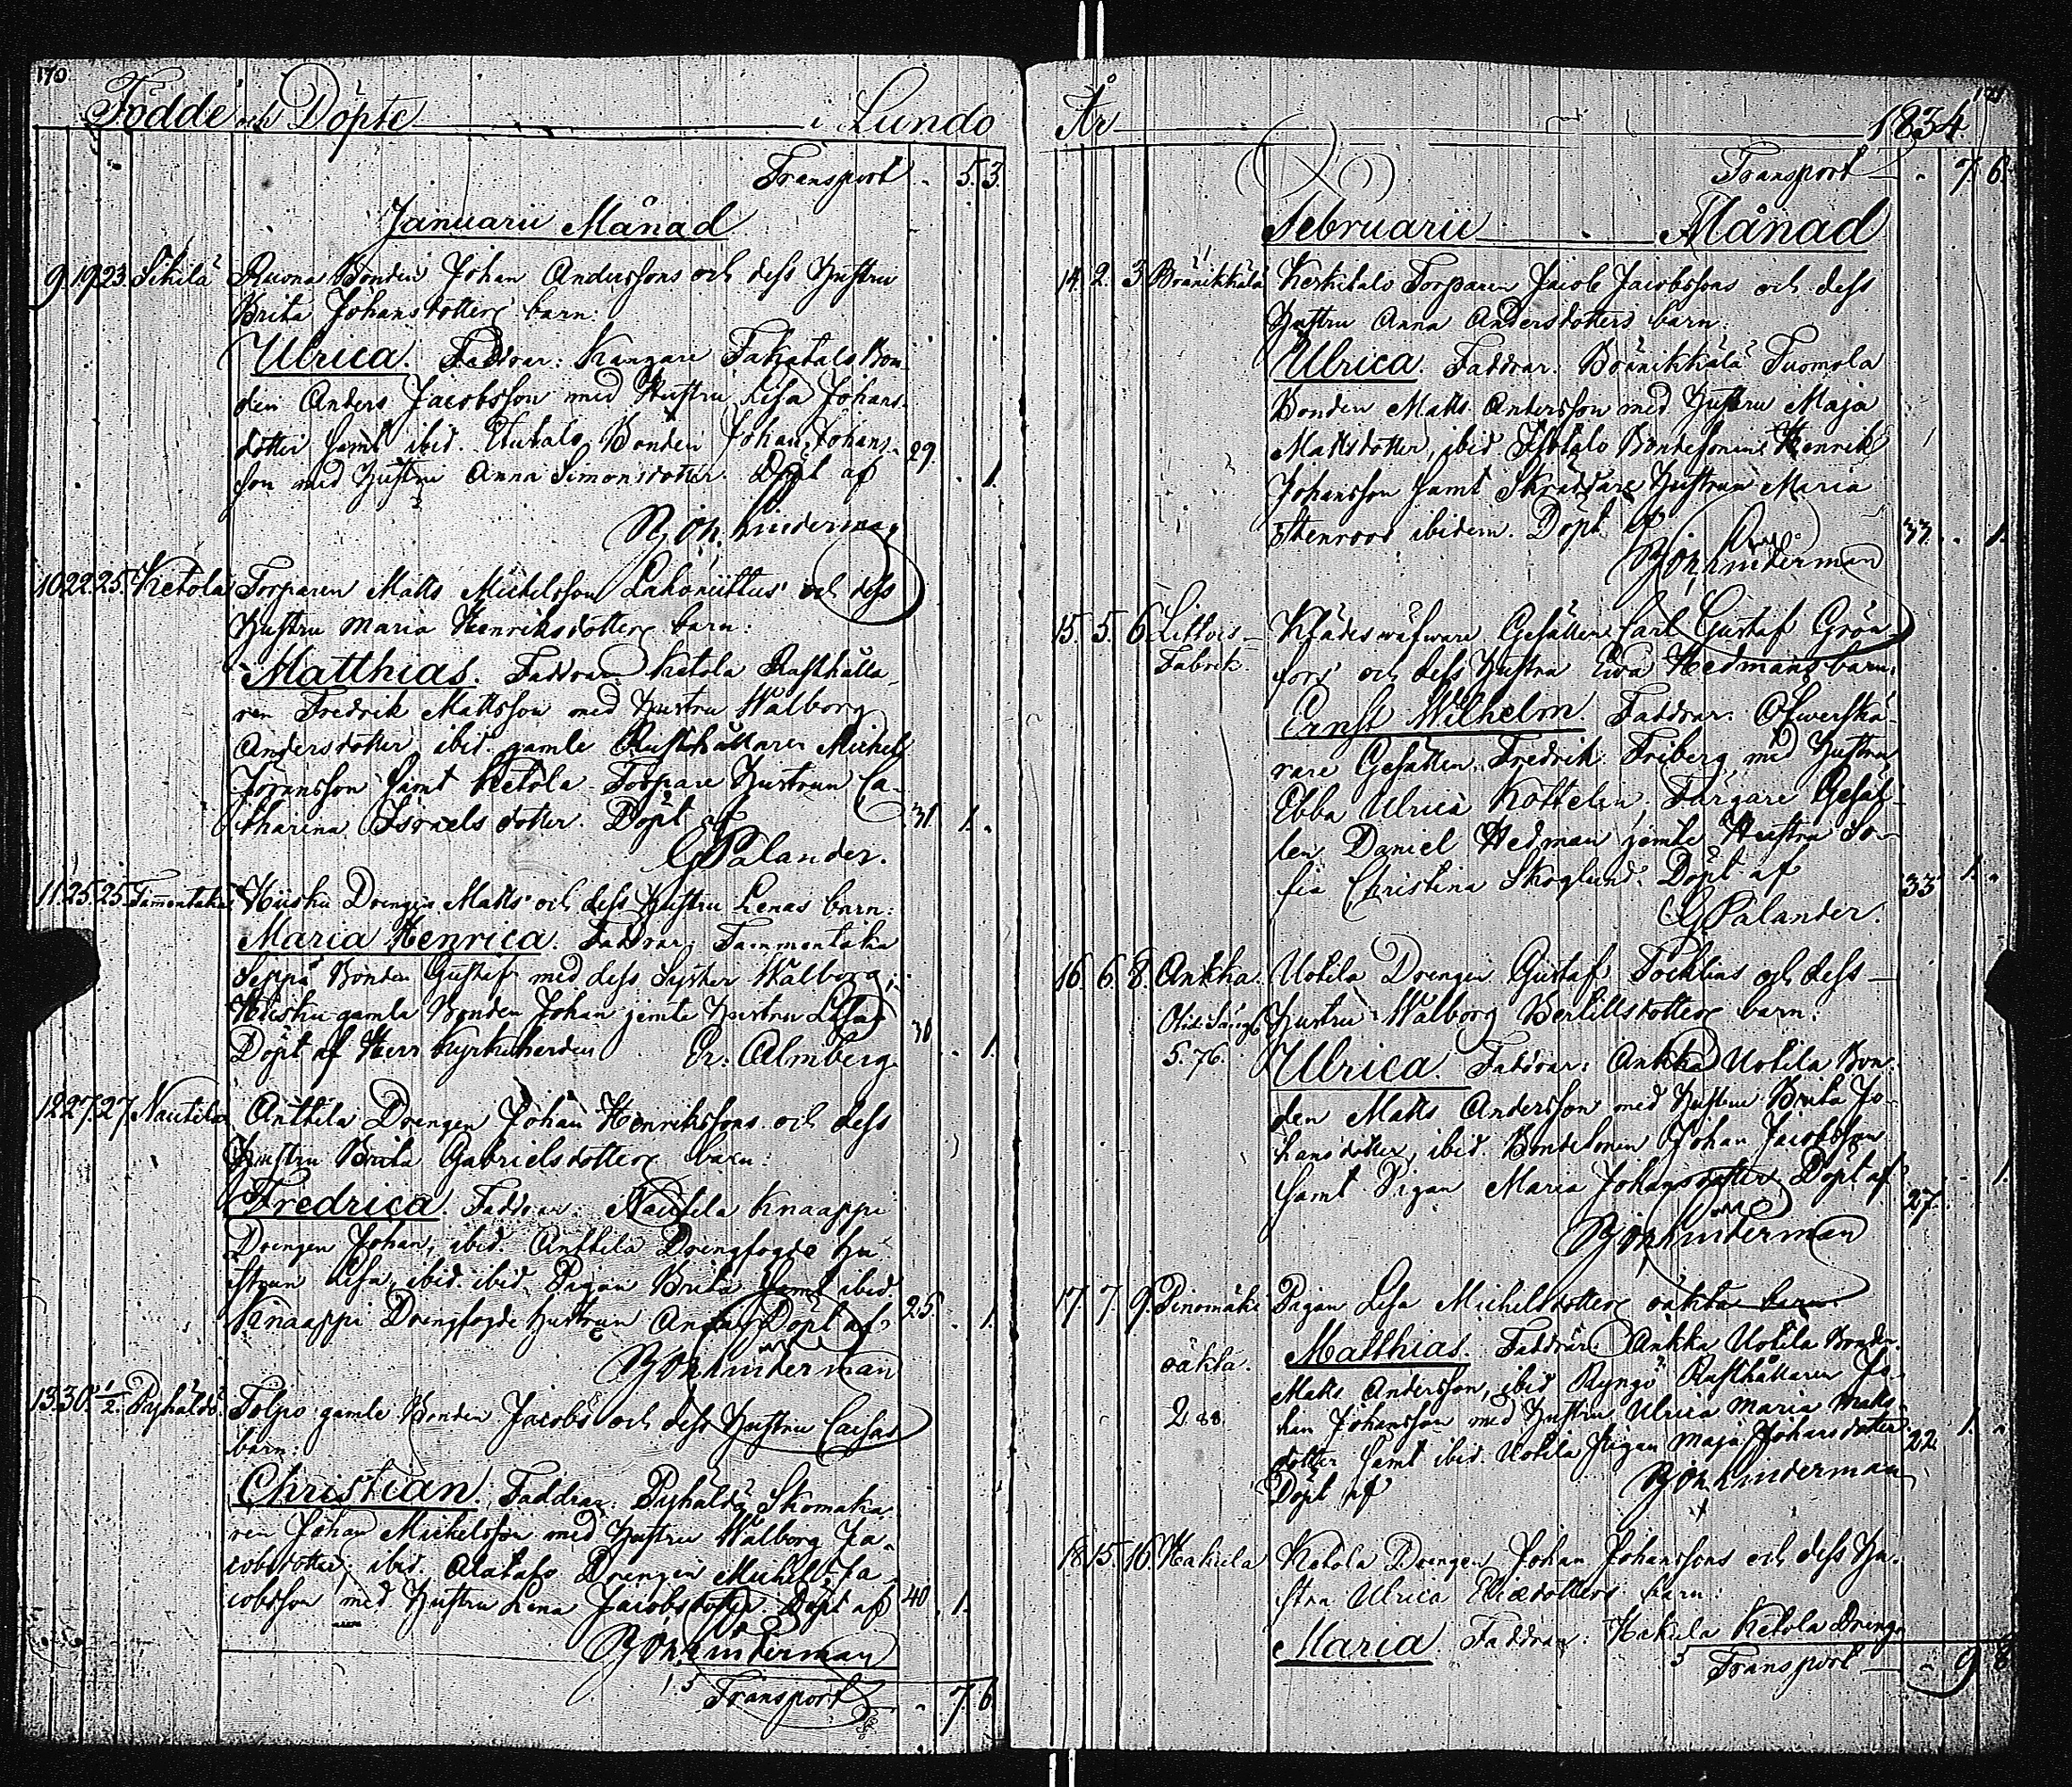 170.
Födde och Döpte i Lundo
Transport 5. 3.
Januarii Månad
9. 19. 23. Tikilä Ruona Bonden Johan Anderssons och dess Hustru
Brita Johansdotters barn:
Ulrica. Faddrar: Kangare Takatalo Bon-
den Anders Jacobsson med Hustru Lisa Johans-
dotter samt ibid. Bonden Johan Johans-
son med Hustru Anna Simonsdotter. Döpt af 29. 1.
Björklinderman
10. 22. 25. Ketola Torparen Matts Michelsson och dess
Hustru Maria Henriksdotters barn:
Matthias. Faddrar: Ketola Rusthålla-
ren Fredrik Mattsson med Hustru Walborg
Andersdotter, ibid. gamle Rusthållaren Michel
Göransson samt Ketola Torpare Hustrun Ca-
tharina Israelsdotter. Döpt af 31. 1.
G Palander.
11. 25. 25. Tammentaka Hiisku Drengen Matts och dess Hustru Lenas barn:
Maria Henrica. Faddrar: Tammentaka
Seppä Bonden Gustaf med dess Syster Walborg,
Hiisku gamla Bonden Johan jemte Hustru Lisa
Döpt af Herr Kyrkoherden Er. Almberg. 30 1.
12. 27. 27. Nautila Anttila Drengen Johan Henrikssons och dess
Hustru Brita Gabrielsdotters barn:
Fredrica. Faddrar: Nautila Knaappi
Drengen Johan, ibid. Anttila Drengfogde Hu-
strun Lisa, ibid. ibid. Pigan Brita samt ibid.
Knaappi Drengfogde Hustrun Anna Döpt af 25. 1.
Björklinderman
13. 30. 1/2. Pyhältö Tolpo gamle Bonden Jacobs och dess Hustru Caisas
barn:
Christian. Faddrar: Pyhältö Skomaka-
ren Johan Michelsson med Hustru Walborg Ja-
cobsdotter, ibid. Alatalo Drengen Michel Ja-
cobsson med Hustru Lena Jacobsdotter Döpt af 40. 1.
Björklinderman
Transport 7. 6.
År 1834
Transport 7 6.
Februarii Månad
14. 2. 3. Bränikkälä Kerkitalo Torparen Jacob Jacobssons och dess
Hustru Anna Andersdotters barn:
Ulrica. Faddrar: Bränikkälä Tuomola
Bonden Matts Andersson med Hustru Maja
Mattsdotter, ibid. Isotalo Bondesonen Henrik
Johansson samt Skräddare Hustrun Maria
Stenroos ibidem. Döpt af 33. 1.
Björklinderman
15. 5. 6. Littois Klädeswäfware Gesällen Carl Gustaf Grön-
Fabrik. fors och dess Hustru Ewa Hedmans barn:
Ernst Wilhelm. Faddrar: Öfwerskä-
rare Gesällen Fredrik Friberg med Hustru
Ebba Ulrica Kottelin. Färgare Gesäl-
len Daniel Hedman jemte Hustru So-
fia Christina Skoglund. Döpt af 33 1.
G Palander.
16. 6. 8. Ankka. Uotila Drengen Gustaf Tocklins och dess
Hustru Walborg Bertillsdotters barn:
5. 76. Ulrica. Faddrar: Ankka Uotila Bon-
den Matts Andersson med Hustru Brita Jo-
hansdotter, ibid. Bondesonen Johan Jacobsson
samt Pigan Maria Johansdotter Döpt af 27. 1.
Björklinderman
17. 7. 9. Pinomäki Pigan Lisa Michelsdotters oäkta barn
oäkta. Matthias. Faddrar: Ankka Uotila Bonden
Matts Andersson, ibid. Ryngö Rusthållaren Jo-
2 88. han Johansson med Hustru Ulrica Maria Matts-
dotter samt ibid. Uotila Pigan Maja Johansdotter 22. 1.
Döpt af Björklinderman
18. 15. 16. Hakula Ketola Drengen Johan Johanssons och dess Hu-
stru Ulrica Eliædotters barn:
Maria Faddrar: Hakula Ketola Dreng-
Transport 9 8